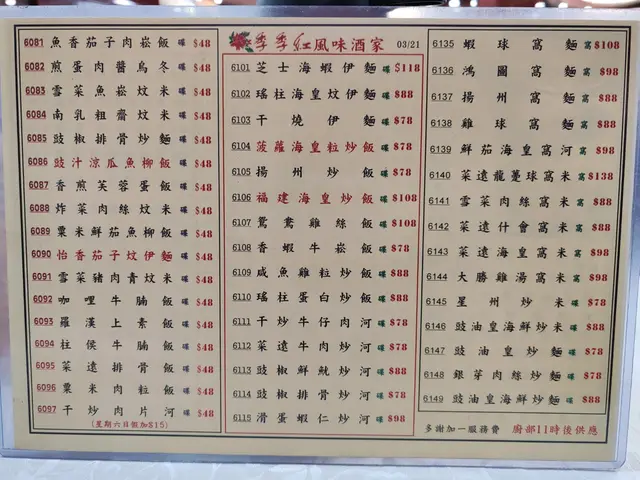 6081 魚香茄子肉崧飯 碟 $48
6082 煎蛋肉醬烏冬 碟 $48
6083 雪菜魚崧炆米 碟 $48
6084 南乳粗齋炆米 碟 $48
6085 豉椒排骨炒麵 碟 $48
6086 豉汁涼瓜魚柳飯 碟 $48
6087 香煎芙蓉蛋飯 碟 $48
6088 炸菜肉絲炆米 碟 $48
6089 粟米鮮茄魚柳飯 碟 $48
6090 怡香茄子炆伊麵 碟 $48
6091 雪菜豬肉青炆米 碟 $48
6092 咖哩牛腩飯 碟 $48
6093 羅漢上素飯 碟 $48
6094 柱侯牛腩飯 碟 $48
6095 菜遠排骨飯 碟 $48
6096 粟米肉粒飯 碟 $48
6097 干炒肉片河 碟 $48
(星期六日假加$15)
季季紅風味酒家 03/21
6101 芝士海蝦伊麵 碟 $118
6102 瑤柱海皇炆伊麵 碟 $88
6103 干燒伊麵 碟 $78
6104 菠蘿海皇粒炒飯 碟 $78
6105 揚州炒飯 碟 $78
6106 福建海皇炒飯 碟 $108
6107 鴛鴦雞絲飯 碟 $108
6108 香蝦牛崧飯 碟 $78
6109 咸魚雞粒炒飯 碟 $88
6110 瑤柱蛋白炒飯 碟 $88
6111 干炒牛仔肉河 碟 $78
6112 菜遠牛肉炒河 碟 $78
6113 豉椒鮮魷炒河 碟 $88
6114 豉椒排骨炒河 碟 $78
6115 滑蛋蝦仁炒河 碟 $98
6135 蝦球窩麵 窩 $108
6136 鴻圖窩麵 窩 $98
6137 揚州窩麵 窩 $88
6138 雞球窩麵 窩 $88
6139 鮮茄海皇窩河 窩 $98
6140 菜遠龍躉球窩米 窩 $138
6141 雪菜肉絲窩米 窩 $88
6142 菜遠什會窩米 窩 $88
6143 菜遠海皇窩米 窩 $98
6144 大勝雞湯窩米 窩 $98
6145 星州炒米 碟 $78
6146 豉油皇海鮮炒米 碟 $88
6147 豉油皇炒麵 碟 $78
6148 銀芽肉絲炒麵 碟 $78
6149 豉油皇海鮮炒麵 碟 $88
多謝加一服務費 廚部11時後供應